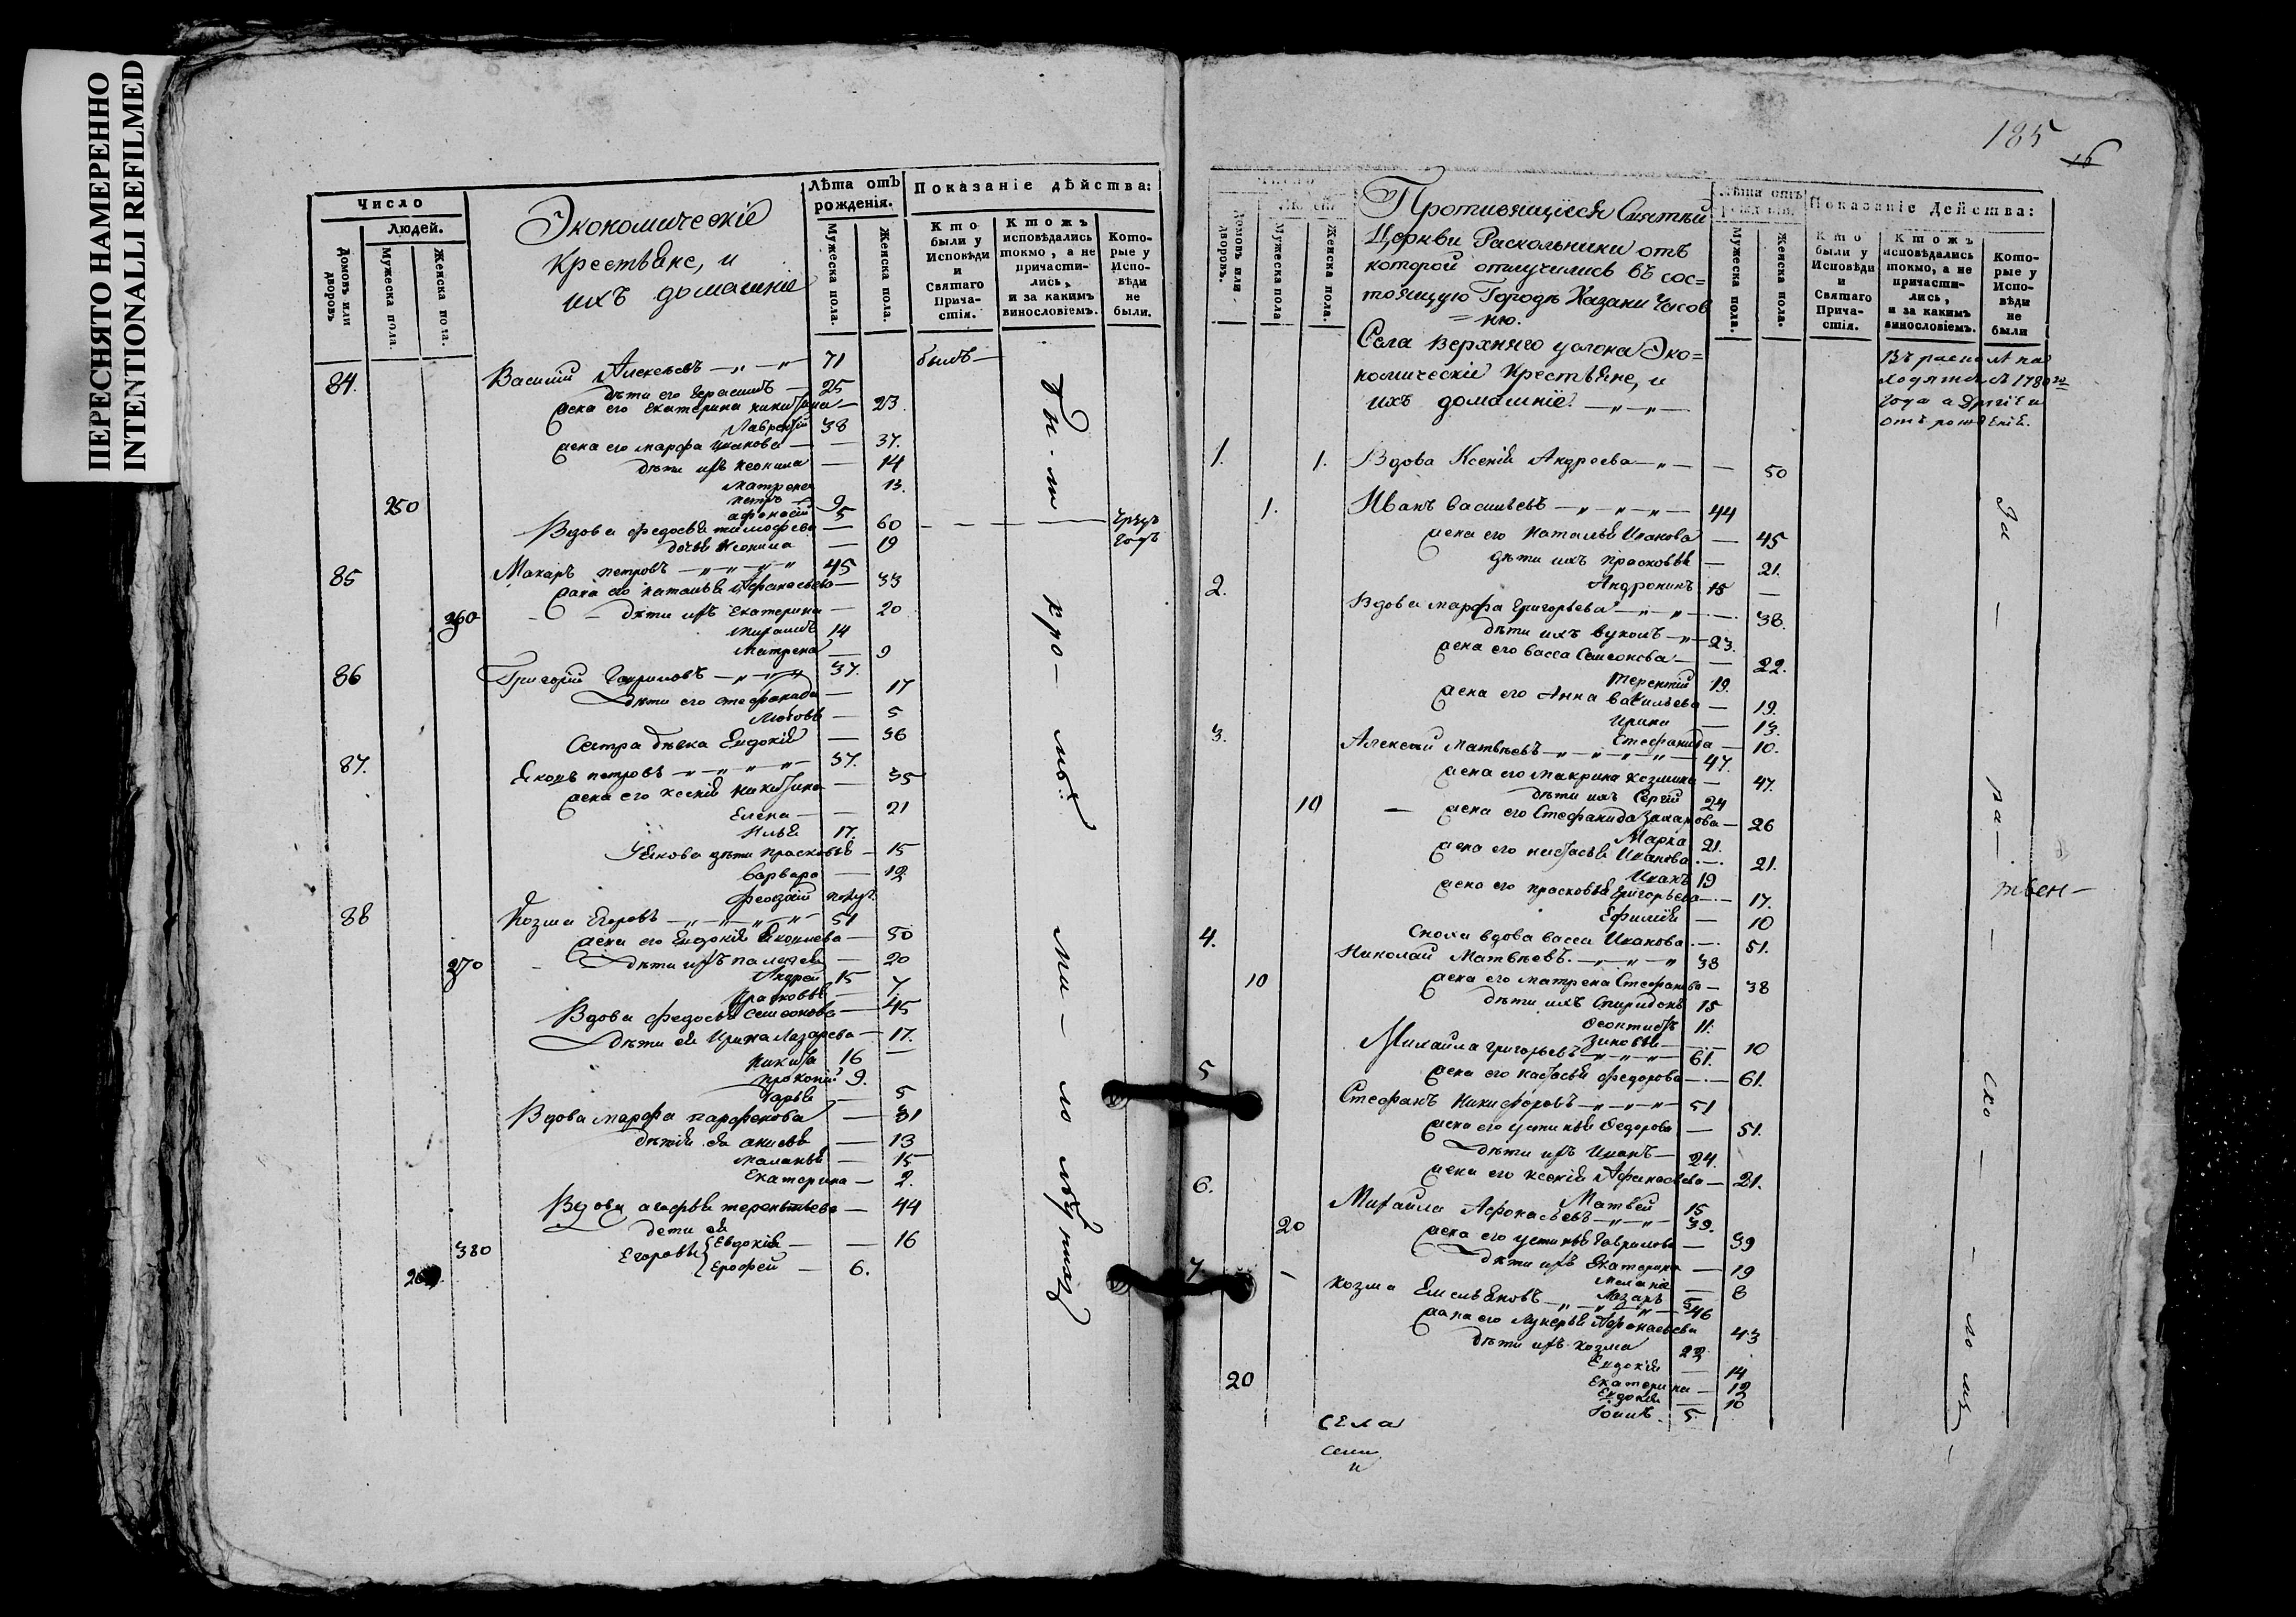 ПЕРЕСНЯТО НАМЕРЕННО
INTENTIONALLI REFILMED
Число
Людей.
Домовъ или дворовъ
Мужеска пола.
Женска пола.
Экономическіе
Крестьяне, и
ихъ домашніе
Лѣта отъ рожденія.
Мужеска пола.
Женска пола.
Показаніе дѣйства:
Кто были у Исповѣди и Святаго Причастія.
Ктожъ исповѣдались токмо, а не причастились, и за какимъ винословіемъ.
Которые у Исповѣди не были.
84. Василій Алексѣевъ 71 былъ
дѣти его Герасимъ 25
жена его Екатерина никитина 23.
Лаврентій 38
жена его марфа Иванова 37.
дѣти ихъ неонила 14
матрена 13.
петръ 9
250 афонасій 5
Вдова федосья тимофеева 60 чрезъ годъ
дочья неонила 19
85 Макаръ петровъ 45
жена его наталья Афанасьева 33
360 дѣти ихъ екатерина 20
михаилъ 14
матрена 9
86 Григорій Гавриловъ 37.
дѣти его стефанида 17
любовь 5
Сестра дѣвка Евдокія 36
87. Яковъ петровъ 37.
жена его ксенія никитина 35
Елена 21
Илья 17.
Якова дѣти прасковья 15
варвара 12
феодосій
88 Козма Егоровъ 51
жена его Евдокія Яковлева 50
270 дѣти ихъ палагея 20
Андрей 15
прасковья 7.
Вдова федосья семенова 45
дѣти ея Ирина Лазарева 17.
никита 16
прокопій 9.
Дарья 5
Вдова марфа парфенова 31
дѣти ея анисья 13
маланья 15
Екатерина 2.
Вдова агафья терентьева 44
дети ея
380 Егоровы Евдокія 16
260 Ерофей 6.
185
16
Домовъ или дворовъ.
Мужеска пола
Женска пола.
Противящіеся Святей
Церкви Раскольники отъ
которой отлучились въ сос=
тоящую Городѣ Казани Часов
=ню.
Села верхняго услона Эко=
номическіе Крестьяне, и
ихъ домашніе.
Лѣта отъ рожденія.
Мужеска пола.
Женска пола.
Показаніе Действа:
Кто были у Исповѣди и Святаго Причастія.
Ктожъ исповѣдались токмо, а не причастились, и за какимъ винословіемъ.
Которые у Исповѣди не были
Въ расколѣ на
ходятся с 1780го
года а другіе и
отъ рожденія.
1. 1. Вдова Ксенія Андреева 50
1. Иванъ васильевъ 44
жена его наталья Иванова 45
дѣти ихъ прасковья 21.
2. Андронинъ 15
Вдова марфа Григорьева 38.
дѣти ихъ вуколъ 23.
жена его васса Семенова 22.
терентій 19.
жена его Анна васильева 19.
Ирина 13.
3. Стефанида 10.
Алексей матвѣевъ 47.
жена его макрина козмина 47.
дѣти ихъ Сергій 24
10 жена его Стефанида Захарова 26
Марко 21.
жена его настасья Иванова 21.
Иванъ 19
жена его прасковья Григорьева 17.
Ефимія 10
4. Сноха вдова васса Иванова 51.
Николай Матвѣевъ. 38
10 жена его матрена Стефанова 38
дѣти ихъ Спиридонъ 15
Феоктистъ 11.
Зиновья 10
Михайла григорьевъ 61.
5 жена его настасья федорова 61.
Стефанъ никифоровъ 51
жена его устинья федорова 51.
дѣти ихъ Иванъ 24.
жена его ксенія Афанасьева 21.
6. Матвей 15
Михаила Афонасьевъ 39.
20 жена его устинья Гаврилова 39
дѣти ихъ Екатерина 19
меланія 8
7 Лазарь 5
козма Емельяновъ 46
жена его лукерья Афонасьева 43
дѣти ихъ козма 22.
Евдокія 14
20 Екатерина 12
Евдокія 10
Іоиль 5.
села